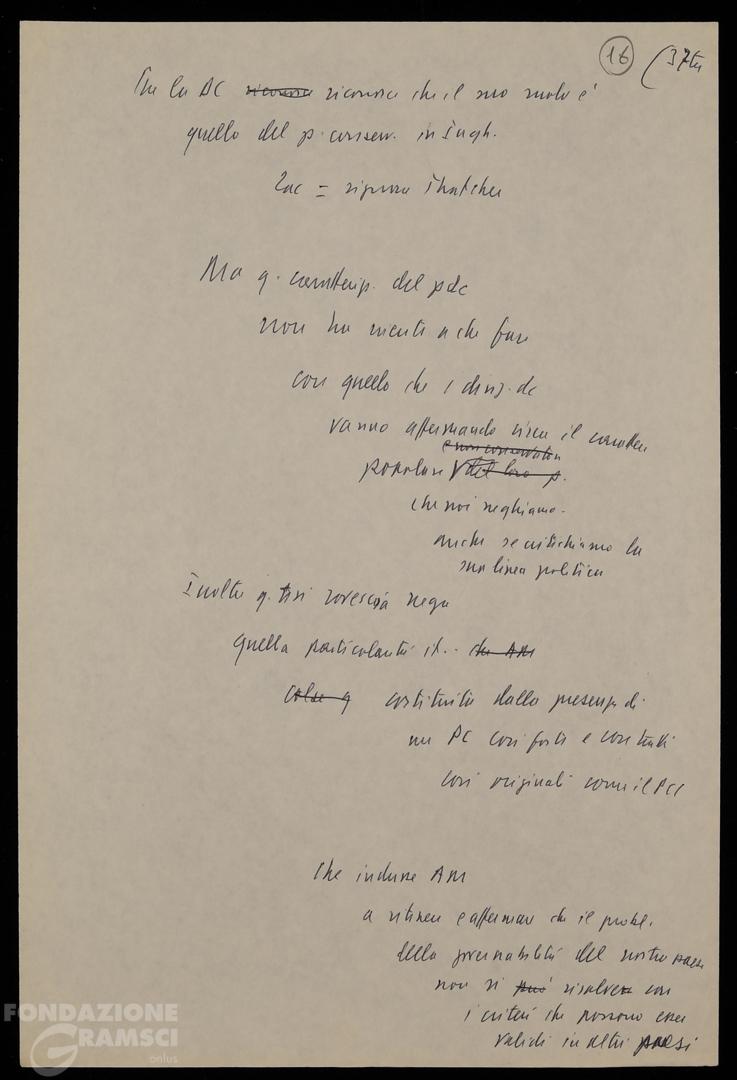 16 (37ter
Che la DC riconosca riconosca che il suo ruolo è
quello del p. conserv. in Ingh.
Zac = signora Thatcher
Ma q. caratteriz. del pdc
non ha niente a che fare
con quello che i dirig. dc
vanno affermando circa il carattere
e non conservatore
popolare del loro p.
che noi neghiamo.
anche se critichiamo la
sua linea politica
Inoltre q. tesi rovescia nega
quella particolarità it.. che AM
q costituita dalla presenza di
un PC così forte e con tratti
così originali come il PCI
Che indusse AM
a ritenere e affermare che il probl.
della governabilità del nostro paese
non si può risolvere con
i criteri che possono esser
validi in altri paesi
FONDAZIONE
GRAMSCI
onlus